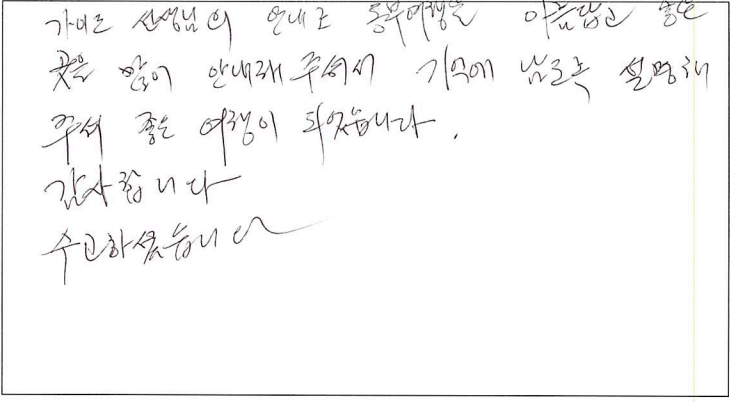 가이드 선생님의 안내로 동부여행을 아름답고 좋은
곳을 많이 안내해 주셔서 기억에 남도록 설명해
주셔 좋은 여행이 되었습니다.
감사합니다
수고하셨습니다